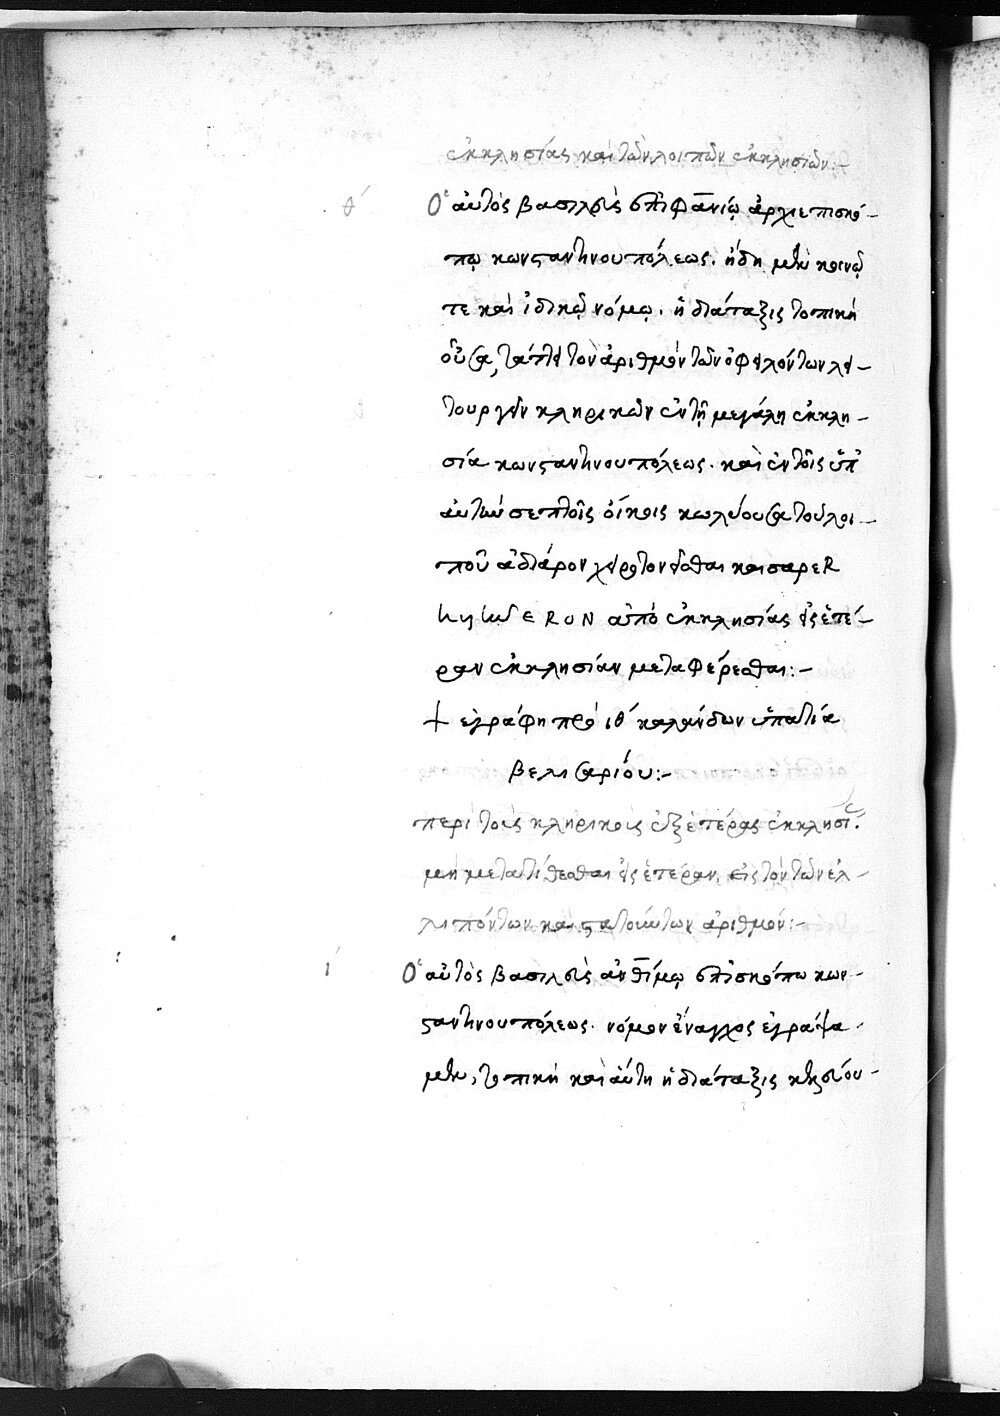 ἐκκλησίας καὶ τῶν λοιπῶν ἐκκλησιῶν:-
θ´ Ὁ αὐτὸς βασιλεὺς ἐπιφανίῳ ἀρχιεπισκό-
πῳ κωνσταντινουπόλεως. ἤδη μὲν κοινῷ
τε καὶ ἰδικῷ νόμῳ. ἡ διάταξις τοπικὴ
οὖσα, τάττει τὸν ἀριθμὸν τῶν ὀφειλόντων λει-
τουργεῖν κληρικῶν ἐν τῇ μεγάλη ἐκκλη-
σία κωνσταντινουπόλεως. καὶ ἐν τοῖς ὑπ'
αὐτὴν σεπτοῖς οἴκοις κωλύουσα τοῦ λοι-
ποῦ ἀδιάφορον χειροτονεῖσθαι
ἀπὸ ἐκκλησίας εἰς ἑτέ-
ραν ἐκκλησίαν μεταφέρεσθαι:-
+ ἐγράφη πρὸ ιθ´ καλανδων ὑπατία
βελισαρίου:-
περὶ τοὺς κληρικοὺς ἐξ ἑτέρας ἐκκλησί
μὴ μετατίθεσθαι εἰς ἑτέραν, εἰς τὸν τῶν ἐλ-
λιπόντων καὶ ἀριθμόν:-
ι´ Ὁ αὐτὸς βασιλεὺς ἀνθίμῳ ἐπισκόπω κων-
σταντινουπόλεως. νόμον ἔναγχος ἐγράψα-
μεν, τοπικὴ καὶ αὕτη ἡ διάταξις